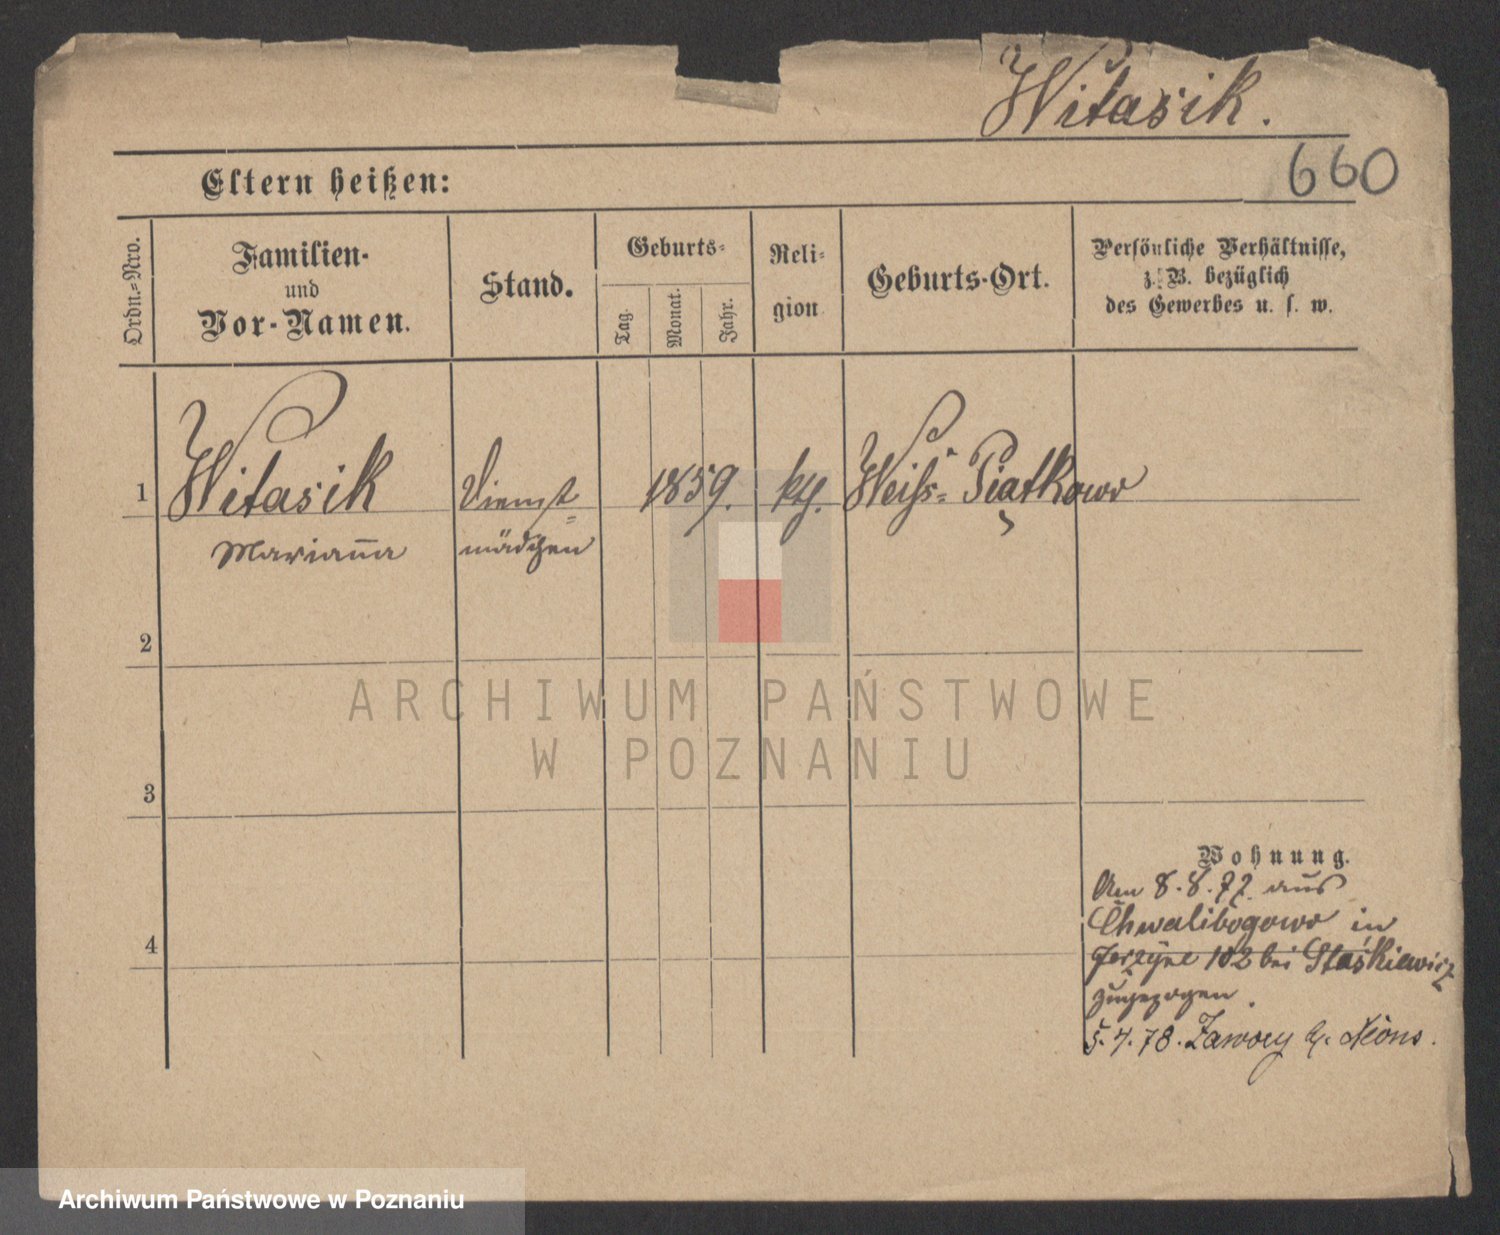 Witasik.
660
Eltern heißen:
Ordn.-Nro.
Familien-
und
Vor-Namen.
Stand.
Geburts-
Tag.
Monat.
Jahr.
Reli-
gion
Geburts-Ort.
Persönliche Verhältnisse,
z. B. bezüglich
des Gewerbes u. s. w.
1 Witasik Dienst= 1859. kth. Weiss= Piątkowo
Marianna mädchen
2
3
4
Wohnung.
Am 8.8.77. aus
Chwalibogowo in
Jerzyce 102 bei Staśkiewicz
zugezogen.
5.4.78. Zawory b.
ARCHIWUM PAŃSTWOWE
W POZNANIU
Archiwum Państwowe w Poznaniu